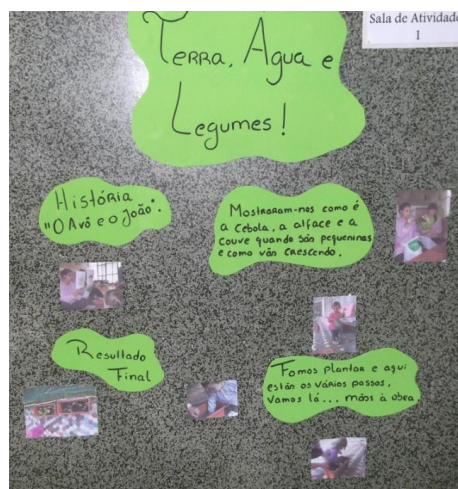 Terra, Água e
Legumes!
Sala de Atividade
I
História
"O Avô e o João".
Mostraram-nos como é
a Cebola, a alface e a
couve quando são pequeninas
e como vão crescendo.
Resultado
Final
Fomos plantar e aqui
estão os vários passos,
Vamos lá... mãos à obra.